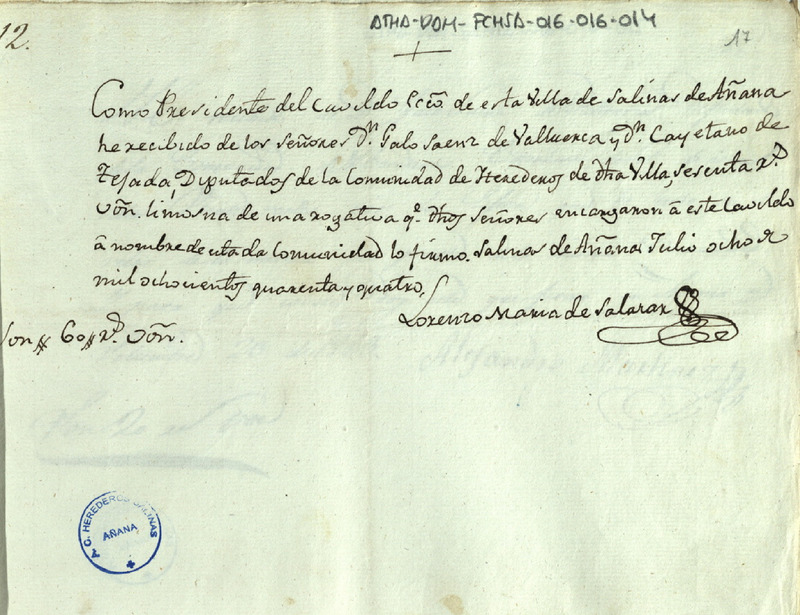 ATHA-DOM-FCHSA-016-016-014
12.
17
Como Presidente del Cavildo Ecco. de esta Villa de Salinas de Añana
he recibido de los Señores Dn. Galo Saenz de Valluerca y dn. Cayetano de
Tejada, Diputados de la Comunidad de Herederos de dha Villa, sesenta rs.
von. limosna de una rogativa qe. dhos Señores encargaron á este Cavildo
á nombre de citada Comunidad lo firmo. Salinas de Añana Julio ocho de
mil ochocientos quarenta y quatro.
Lorenzo Maria de Salazar
Son 60 rs. von.
HEREDEROS SALINAS
AÑANA